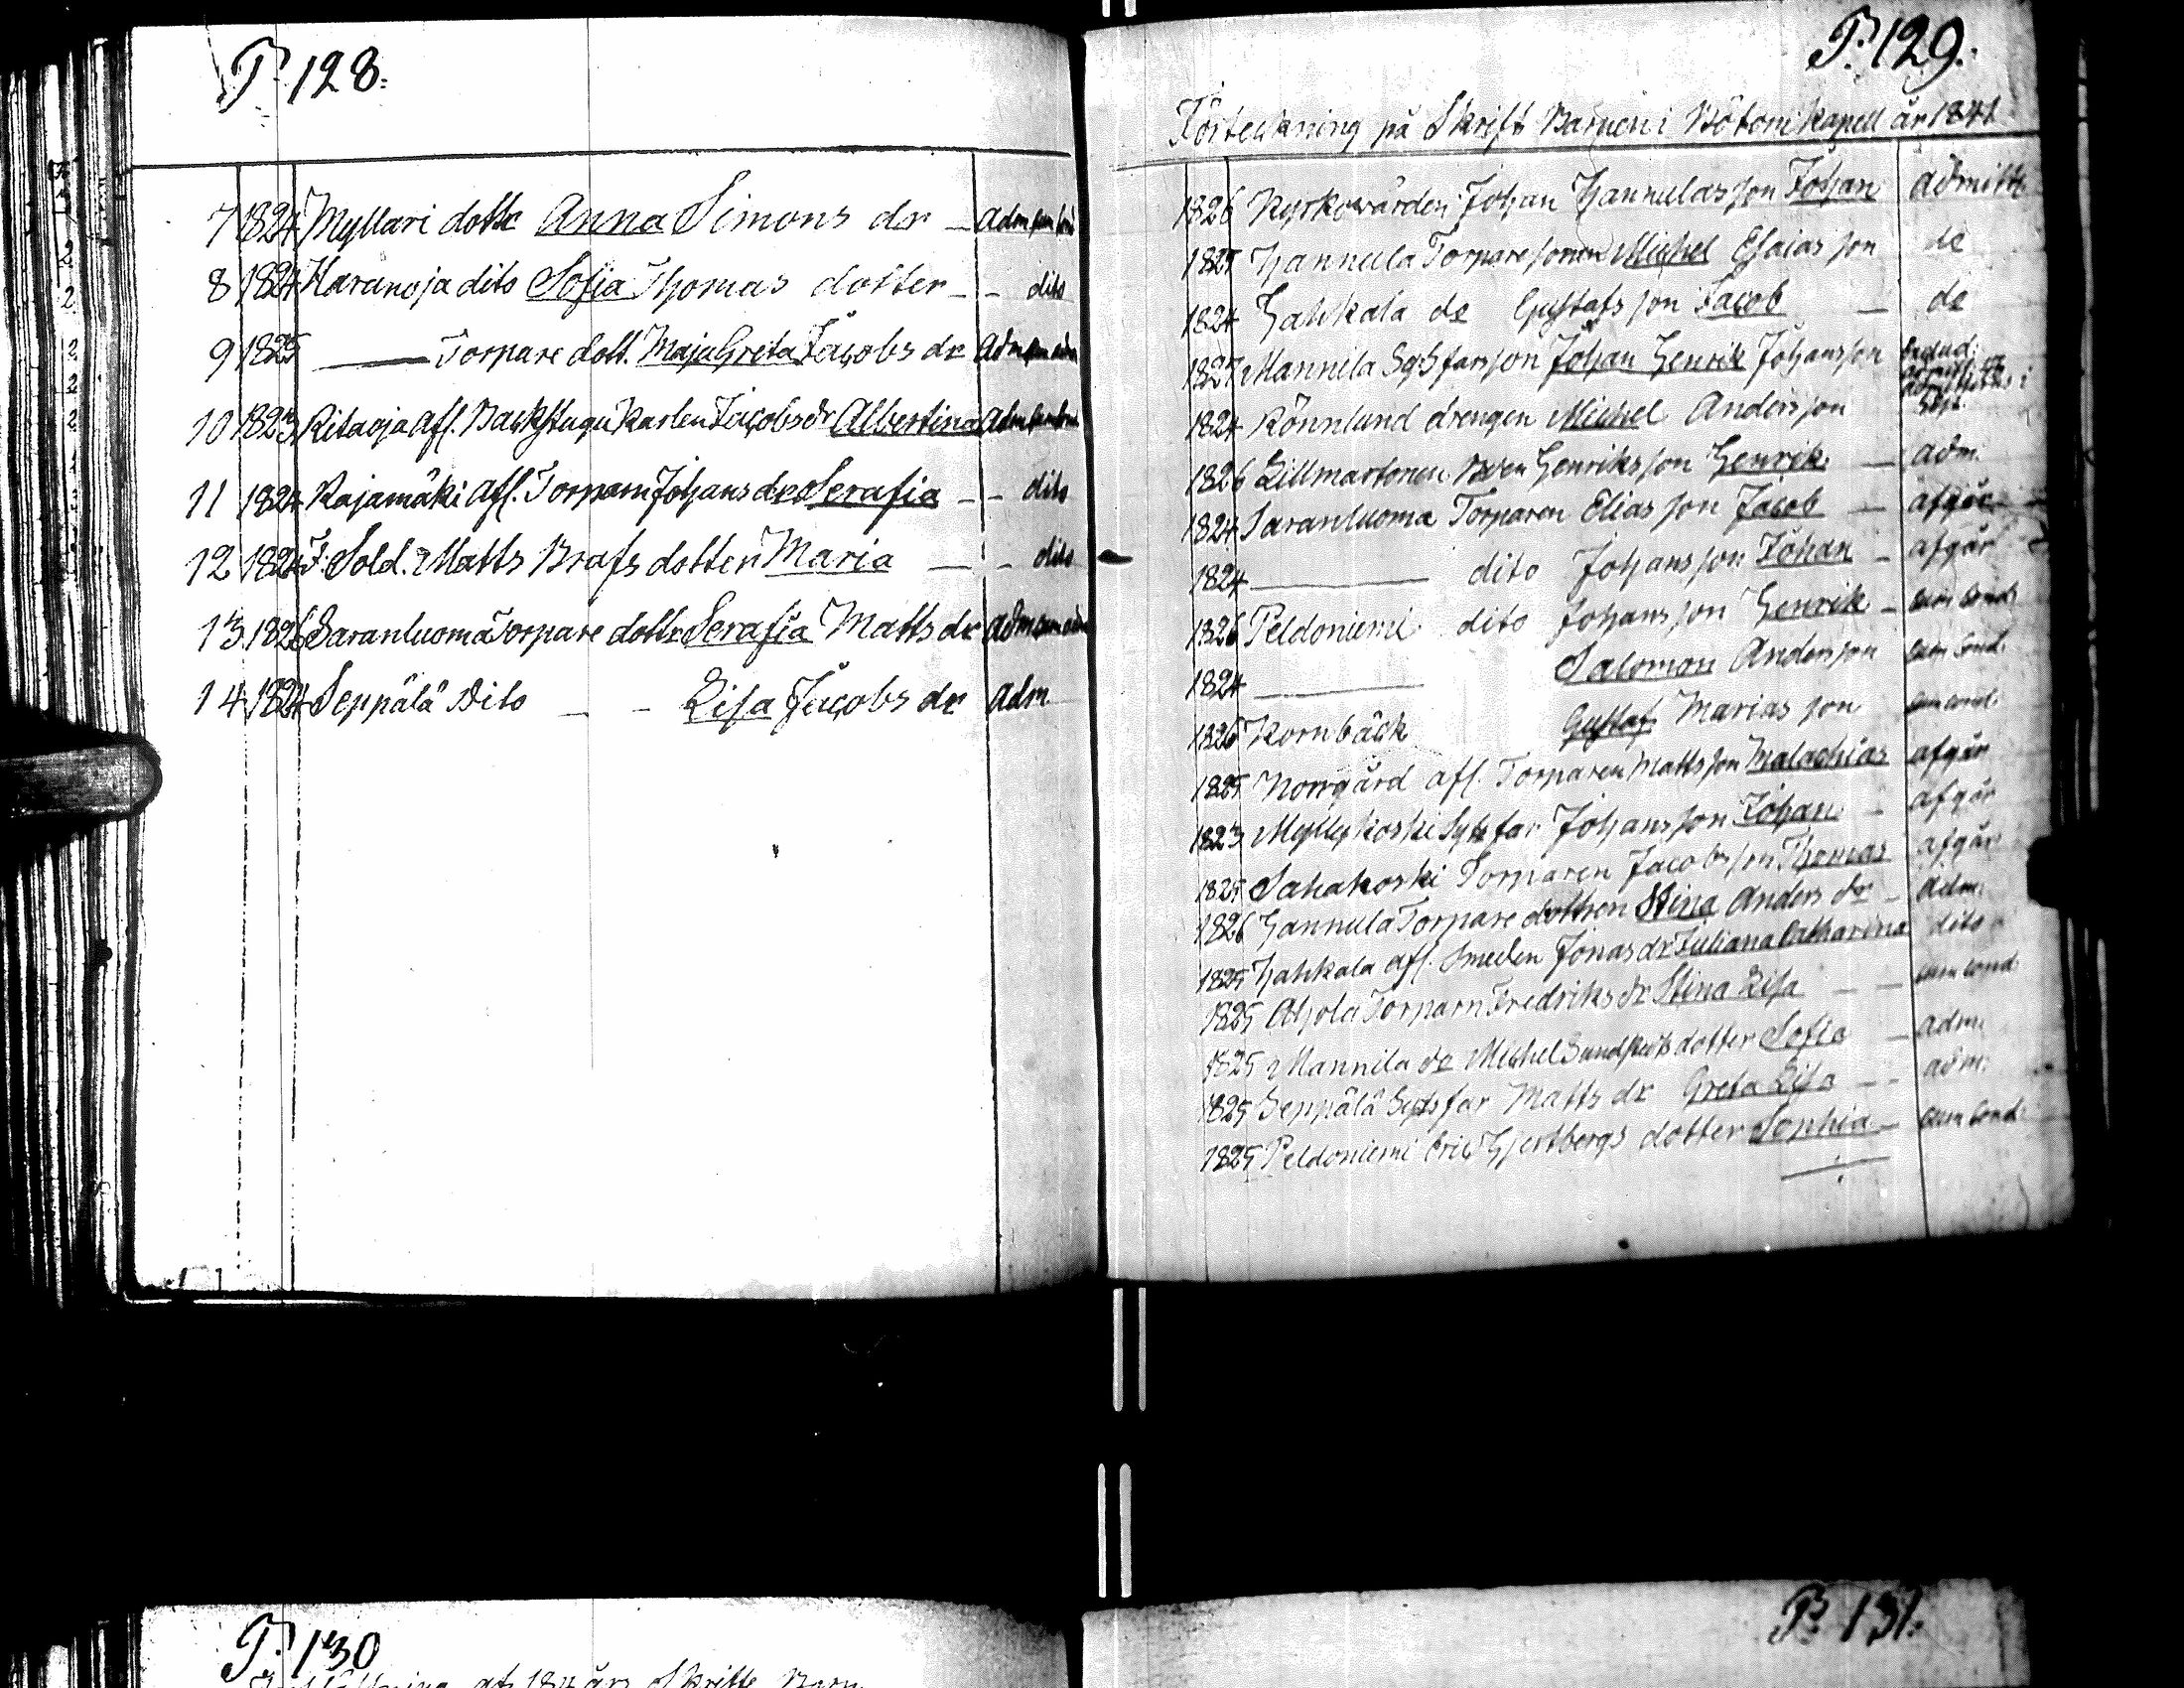 P. 128.
7 1824 Myllari dottr Anna Simons dr — Adm
8 1824 Haranoja dito Sofia Thomas dotter — dito
9 1825 — Torpare dott. Maja Greta Jacobs dr Adm
10 1823 Ritaoja afl. Backstugu Karlen Jacobs dr Albertina Adm
11 1824 Rajamäki afl. Torparn Johans dr Serafia — dito
12 1824 F. Sold. Matts Brafs dotter Maria — dito
13 1826 Saranluoma Torpare dottr Serafia Matts dr Adm
14 1824 Seppälä Dito — Lisa Jacobs dr Adm
P. 129.
Förteckning på Skrift Barnen i Bötom Kapell år 1841
1826 Kyrkovärden Johan Hannulas son Johan admitt
1825 Hannula Torpare sonen Michel Esaias son de
1824 Hahkala de Gustafs son Jacob — de
1825 Mannila Sytsfars son Johan Henrik Johansson
1824 Rönnlund drengen Michel Andersson Sept.
1826 Lillmartonen Henriksson Henrik — adm.
1824 Saranluoma Torparen Elias son Jacob — afgår
1824 — dito Johansson Johan — afgår
1826 Peldoniemi dito Johansson Henrik — cum cond.
1824 — Salomon Andersson cum cond.
1826 Kornbäck Gustaf Marias son cum cond.
1825 Norrgård afl. Torparen Mattsson Malachias afgår
1823 Myllykoski Sytsfar Johansson Johan — afgår
1825 Sahakoski Torparen Jacobsson Thomas afgår
1826 Hannula Torpare dottren Stina Anders dr — adm.
1825 Hahkala afl. Smeden Jonas dr Juliana Catharina dito
1825 Ahola Torparn Fredriks dr Stina Lisa — cum cond.
1825 Mannila de Michel dotter Sofia — adm.
1825 Seppälä Sytsfar Matts dr Greta Lisa — adm.
1825 Peldoniemi Eric Hjertbergs dotter Sophia — cum cond.
P. 130
af 1841 års Skrifte Barn
P. 131.